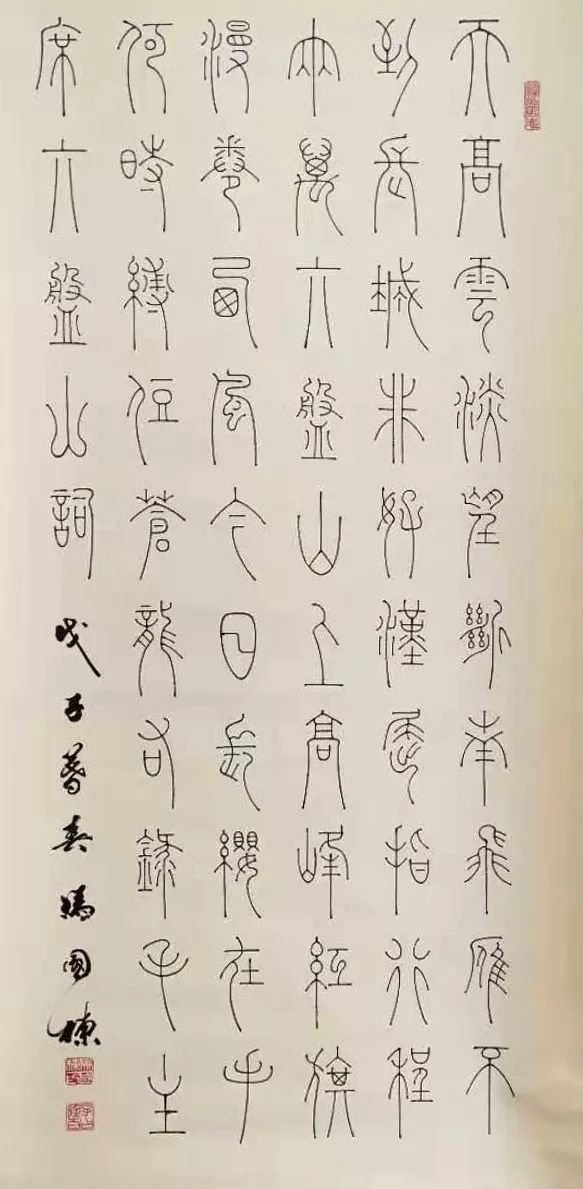 天高雲淡望斷南飛雁不
到長城非好漢屈指行程
兩萬六盤山上高峰紅旗
漫卷西風今日長纓在手
何時縛住蒼龍右錄毛主
席六盤山詞 戊子暮春 國棟